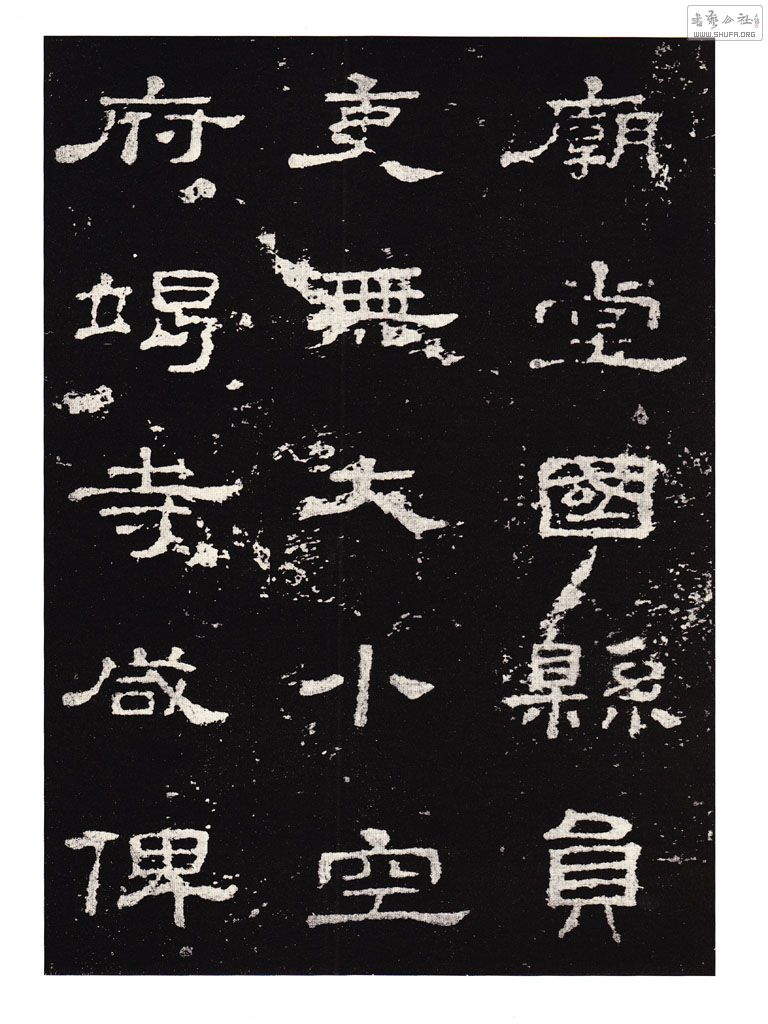 廟堂國縣員
吏無大小空
府竭寺咸俾
書藝公社
WWW.SHUFA.ORG